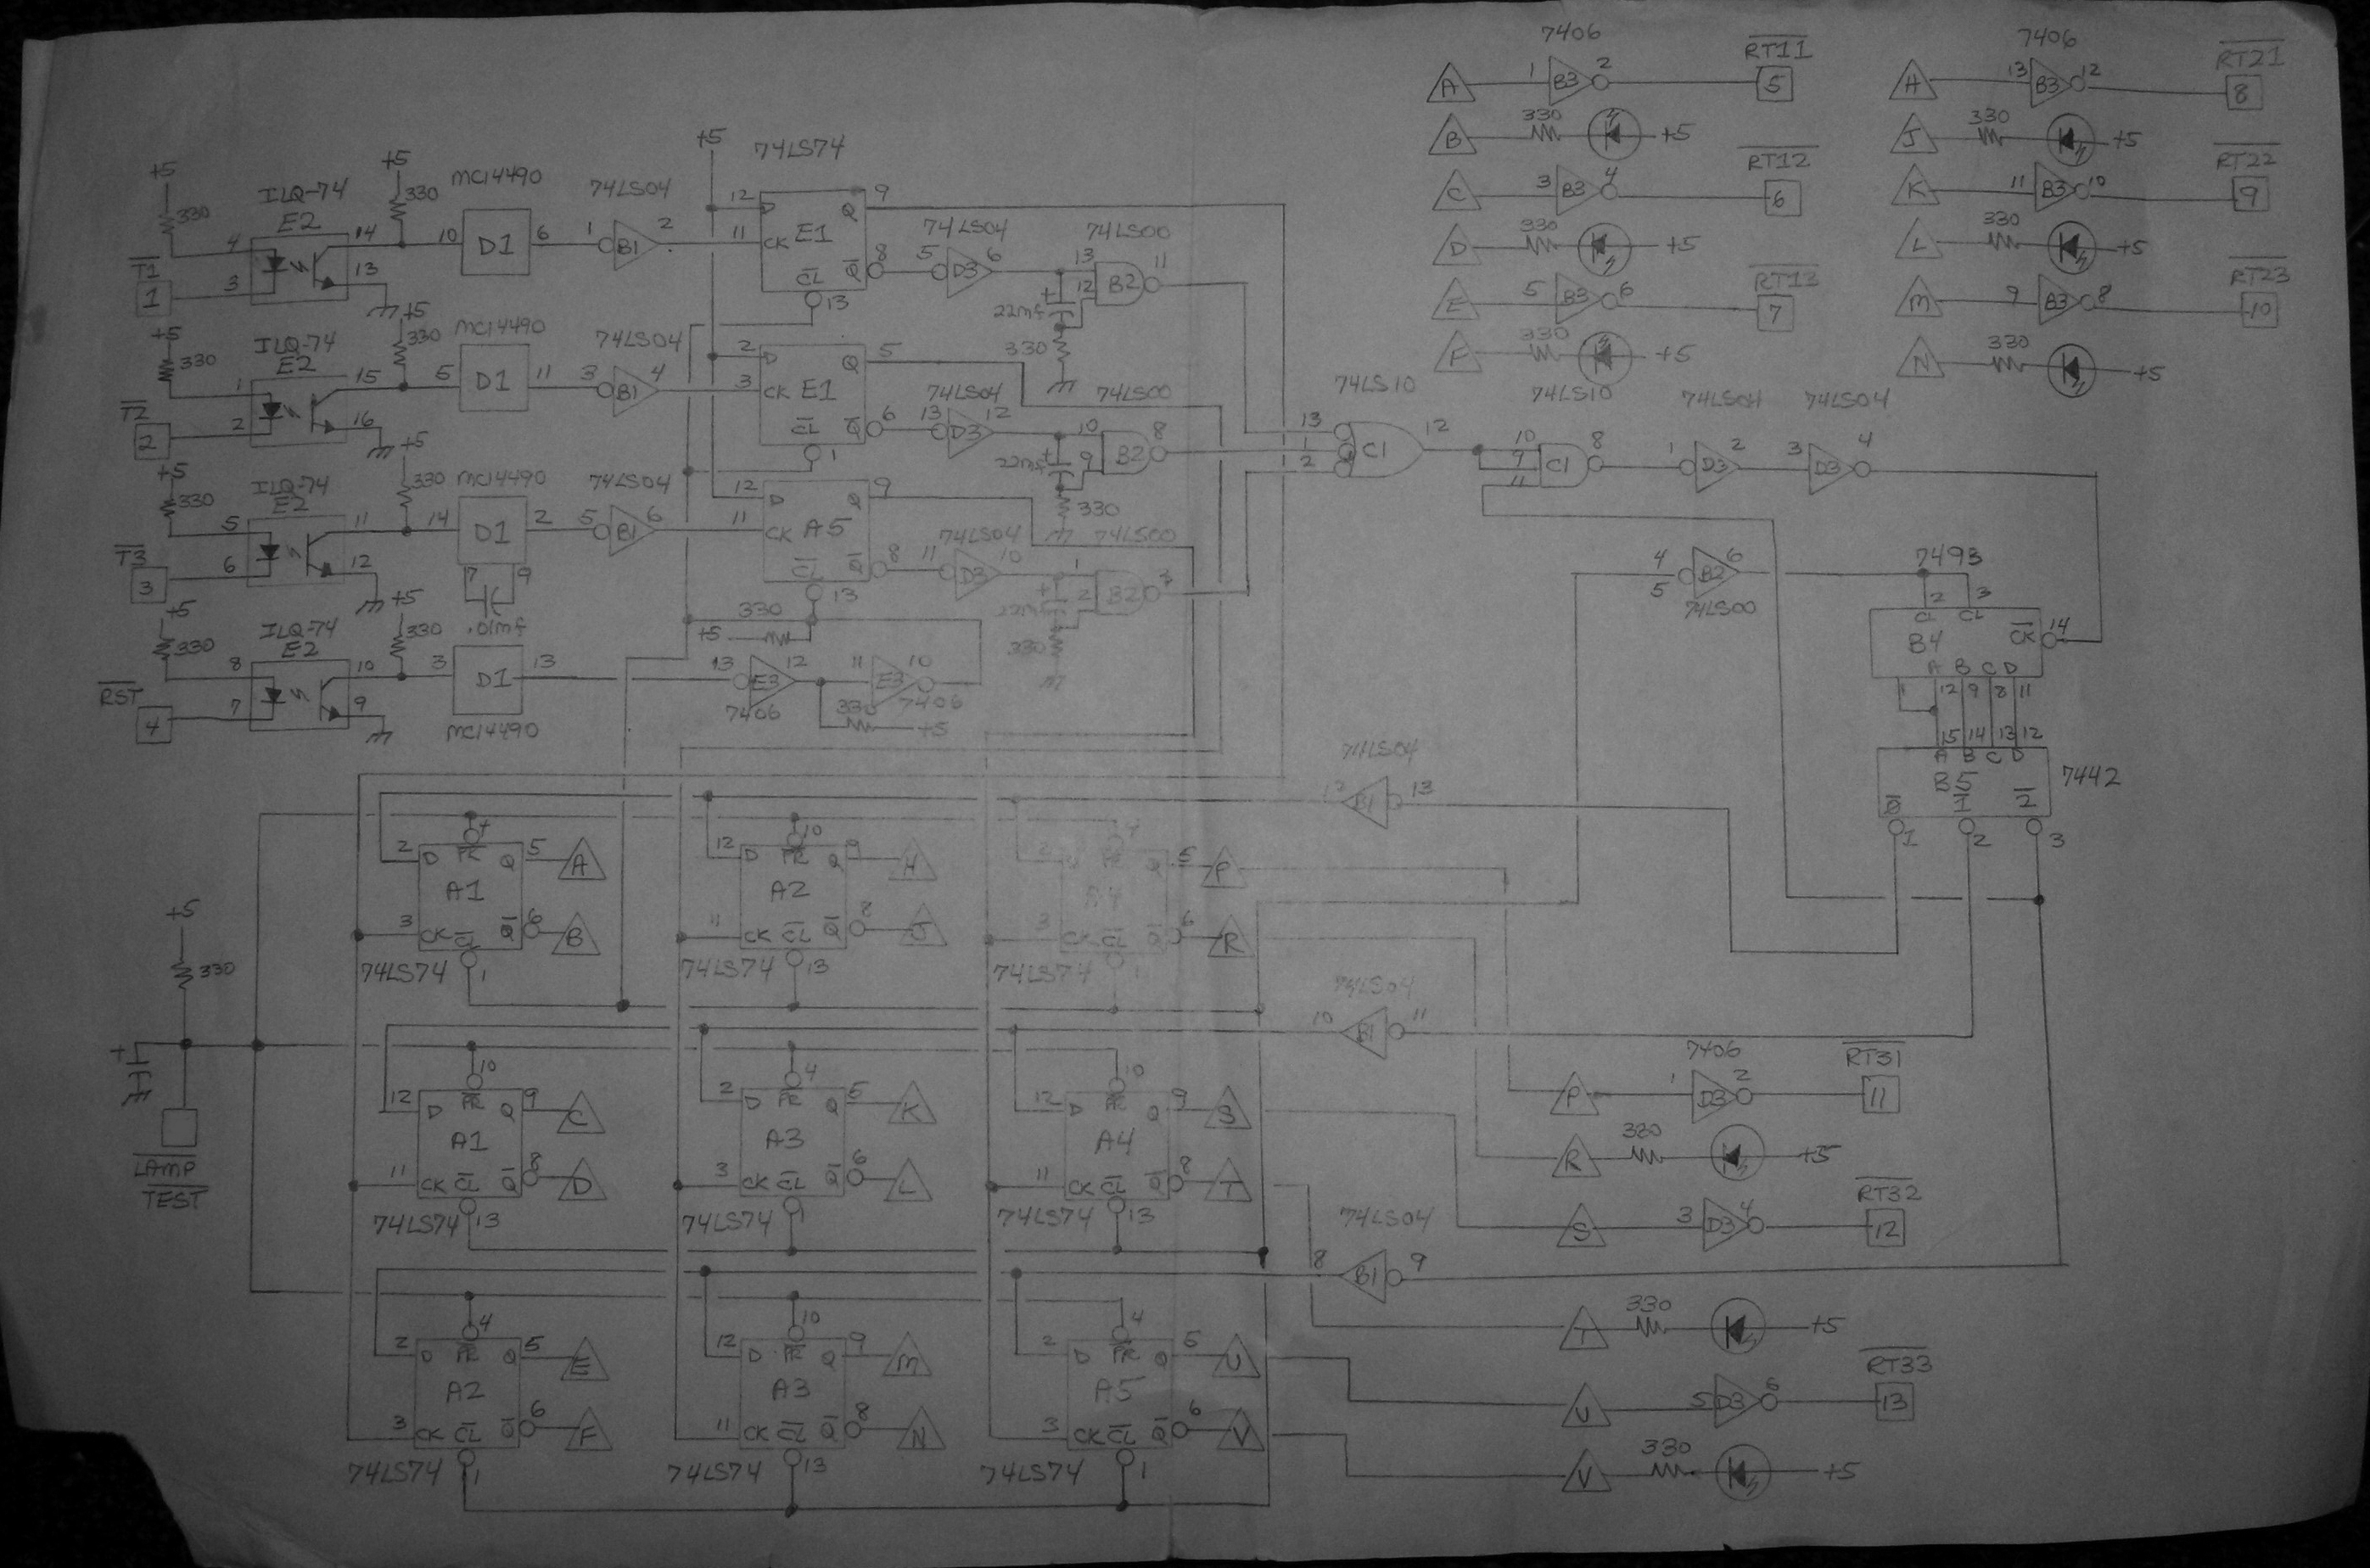 7406 RT11
A 1 B3 2 5
B 330 +5
RT12
C 3 B3 4 6
D 330 +5
RT13
E 5 B3 6 7
F 330 +5
7406 RT21
H 13 B3 12 8
J 330 +5
RT22
K 11 B3 10 9
L 330 +5
RT23
M 9 B3 8 10
N 330 +5
+5 ILQ-74 +5 MC14490 74LS04 +5 74LS74
330 E2 330
4 14 10 D1 6 1 B1 2 12 D Q 9
T1 3 13 11 CK E1
1 CL Q 8 5 D3 6 13 12 B2 11
74LS04 74LS00
13 22mf 330
+5 ILQ-74 +5 MC14490 74LS04
330 E2 330
1 15 5 D1 11 3 B1 4 2 D Q 5
T2 2 16 3 CK E1
2 CL Q 6 13 D3 12 10 9 B2 8
74LS04 74LS00
1 22mf 330
+5 ILQ-74 +5 MC14490 74LS04
330 E2 330
5 11 14 D1 2 5 B1 6 12 D Q 9
T3 6 12 11 CK A5
3 7 9 CL Q 8 11 D3 10 1 2 B2 3
74LS04 74LS00
.01mf 13 22mf 330
+5 ILQ-74 +5
330 E2 330 330 +5
8 10 3 D1 13 13 E3 12 11 E3 10
RST 7 9 7406 330 7406
4 MC14490 +5
74LS10 74LS10 74LS04 74LS04
13 1 2 C1 12 10 9 11 C1 8 1 D3 2 3 D3 4
4 5 B2 6 7493
74LS00 2 3
CL CL
B4 CK 14
A B C D
1 12 9 8 11
15 14 13 12
A B C D
B5 7442
0 1 2
1 2 3
74LS04
12 B1 13
74LS04
10 B1 11
74LS04
8 B1 9
4 10 4
2 D PR Q 5 A 12 D PR Q 9 H 2 D Q 5 P
A1 A2 A4
3 CK CL Q 6 B 11 CK CL Q 8 J 3 CK CL Q 6 R
74LS74 1 74LS74 13 74LS74 1
+5
330
LAMP
TEST
10 4 10
12 D PR Q 9 C 2 D PR Q 5 K 12 D PR Q 9 S
A1 A3 A4
11 CK CL Q 8 D 3 CK CL Q 6 L 11 CK CL Q 8 T
74LS74 13 74LS74 1 74LS74 13
4 10 4
2 D PR Q 5 E 12 D PR Q 9 M 2 D PR Q 5 U
A2 A3 A5
3 CK CL Q 6 F 11 CK CL Q 8 N 3 CK CL Q 6 V
74LS74 1 74LS74 13 74LS74 1
7406 RT31
P 1 D3 2 11
R 330 +5
RT32
S 3 D3 4 12
T 330 +5
RT33
U 5 D3 6 13
V 330 +5